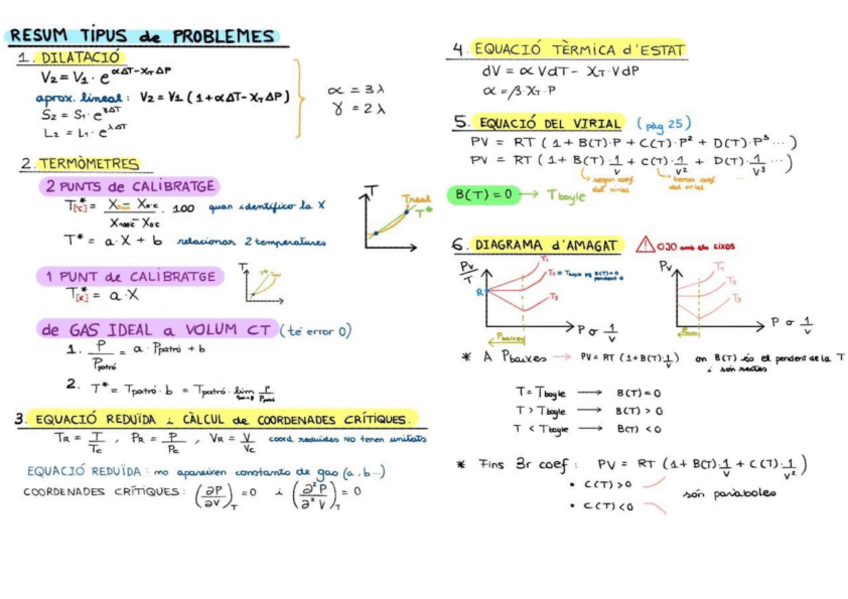 RESUM TIPUS de PROBLEMES
1. DILATACIÓ
V₂ = V₁ · e^αΔT-χ_TΔP
aprox. lineal: V₂ = V₁ (1+αΔT-χ_TΔP)
L₂ = L₁ · e^λΔT
α = 3λ
γ = 2λ
2. TERMÒMETRES
2 PUNTS de CALIBRATGE
100 quan identifico la X
T* = a·X + b relacionar 2 temperatures
T
Treal
T*
1 PUNT de CALIBRATGE
T*[K] = a·X
T
de GAS IDEAL a VOLUM CT (té error 0)
1. P/Ppatró = a · Ppatró + b
2. T* = Tpatró · b = Tpatró · lim P/Ppatró
3. EQUACIÓ REDUÏDA i CÀLCUL de COORDENADES CRÍTIQUES.
T_R = T/T_c , P_R = P/P_c , V_R = V/V_c coord. reduïdes NO tenen unitats
EQUACIÓ REDUÏDA: no apareixen constants de gas (a, b...)
COORDENADES CRÍTIQUES: (∂P/∂V)_T = 0 i (∂²P/∂²V)_T = 0
4. EQUACIÓ TÈRMICA d'ESTAT
dV = αVdT - χ_T VdP
α = β·χ_T·P
5. EQUACIÓ DEL VIRIAL (pàg 25)
PV = RT (1 + B(T)·P + C(T)·P² + D(T)·P³ ...)
PV = RT (1 + B(T)·1/V + C(T)·1/V² + D(T)·1/V³ ...)
segon coef. del virial
tercer coef. del virial
B(T)=0 → Tboyle
6. DIAGRAMA d'AMAGAT OJO amb els EIXOS
PV/T
R
T₁
T₂ = Tboyle pq B(T)=0 pendent 0
T₃
P o 1/V
P baixes
PV
T₁
T₂
T₃
P o 1/V
* A Pbaixes → PV = RT (1+B(T)·1/V) on B(T) és el pendent de la T
i són rectes
T = Tboyle → B(T) = 0
T > Tboyle → B(T) > 0
T < Tboyle → B(T) < 0
* Fins 3r coef: PV = RT (1+ B(T)·1/V + C(T)·1/V²)
• C(T)>0
• C(T)<0
són paràboles